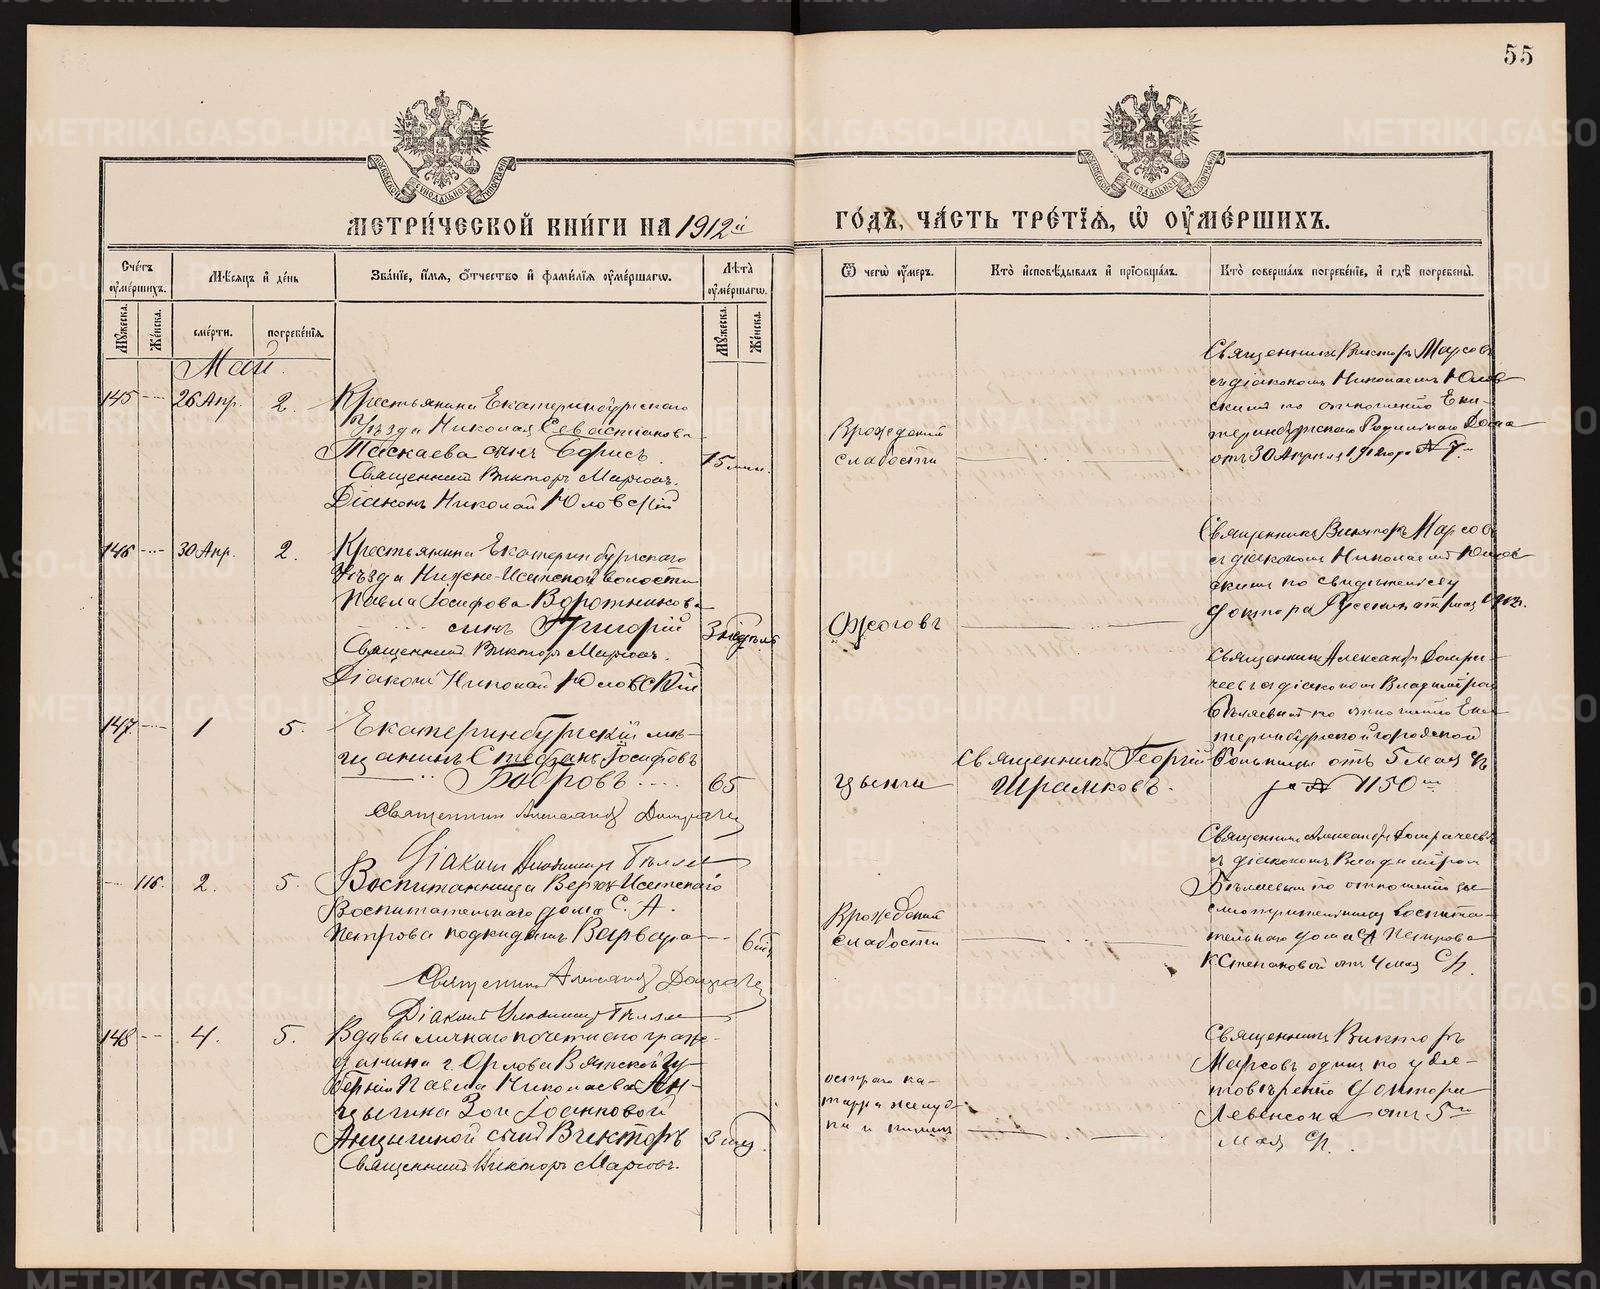 55
МЕТРИ́ЧЕСКОЙ КНИ́ГИ НА 1912й ГО́ДЪ, ЧА́СТЬ ТРЕ́ТІѦ, Ѡ҆ ОУ҆МЕ́РШИХЪ.
Сче́тъ оу҆ме́ршихъ.
Мѣ́сяцъ и҆ де́нь
Зва́нїе, и҆́мѧ, ѻ҆́тчество и҆ фами́лїѧ оу҆ме́ршагѡ.
Лѣта̀ оу҆ме́ршагѡ.
Ѿ чегѡ̀ оу҆́меръ.
Кто̀ и҆сповѣ́дывалъ и҆ прїѡбща́лъ.
Кто̀ соверша́лъ погребе́нїе, и҆ гдѣ̀ погребены̀.
Му́жеска.
Же́нска.
сме́рти.
погребе́нїѧ.
Му́жеска.
Же́нска.
Май.
145 26 Апр. 2.
Крестьянина Екатеринбургскаго
Уѣзда Николая Севастіанова
Таскаева сынъ Борисъ
15 мин.
Священникъ Викторъ Марсовъ.
Діаконъ Николай Юловскій
Врожденной
слабости
Священникъ Викторъ Марсовъ
съ діакономъ Николаемъ Юлов
скимъ по отношенію Ека-
теринбургскаго Родильнаго Дома
отъ 30 Апрѣля 1912 года № 7.
146 30 Апр. 2.
Крестьянина Екатеринбургскаго
Уѣзда Нижне-Исетской волости
Павла Іосифова Воротникова
сынъ Григорій
3 недѣль
Священникъ Викторъ Марсовъ.
Діаконъ Николай Юловскій
Ожоговъ
Священникъ Викторъ Марсовъ
съ діакономъ Николаемъ Юлов
скимъ по свидѣтельству
доктора
147 1 5.
Екатеринбургскій мѣ-
щанинъ Стефанъ Іосифовъ
Бобровъ
65
Священникъ Александръ
Діаконъ Владимиръ
цынги
Священникъ Георгій
Шрамковъ.
Священникъ Александръ
съ діакономъ Владиміромъ
Бѣляевымъ по отношенію Ека
теринбургской городской
больницы отъ 5 мая с/г
за № 1150
116. 2. 5.
Воспитанница Верхъ-Исетскаго
Воспитательнаго дома С. А.
Петрова подкидышъ Варвара
Священникъ Александръ
Діаконъ Владимиръ
Врожденной
слабости
Священникъ Александръ
съ діакономъ Владиміромъ
Бѣляевымъ по отношенію за
смотрительницы воспита-
тельнаго дома СА Петрова
К Степановой отъ 4 мая с/г.
148 4. 5.
Вдовы личнаго почетнаго граж-
данина г. Орлова Вятской гу-
берніи Павла Николаева Ан-
цыгина Зои Іоанновой
Анцыгиной сынъ Викторъ
3 мѣс.
Священникъ Викторъ Марсовъ.
остраго ка-
тарра желуд-
ка и кишекъ
Священникъ Викторъ
Марсовъ одинъ по удос-
товѣренію доктора
Левенсона отъ 5го
мая с/г.